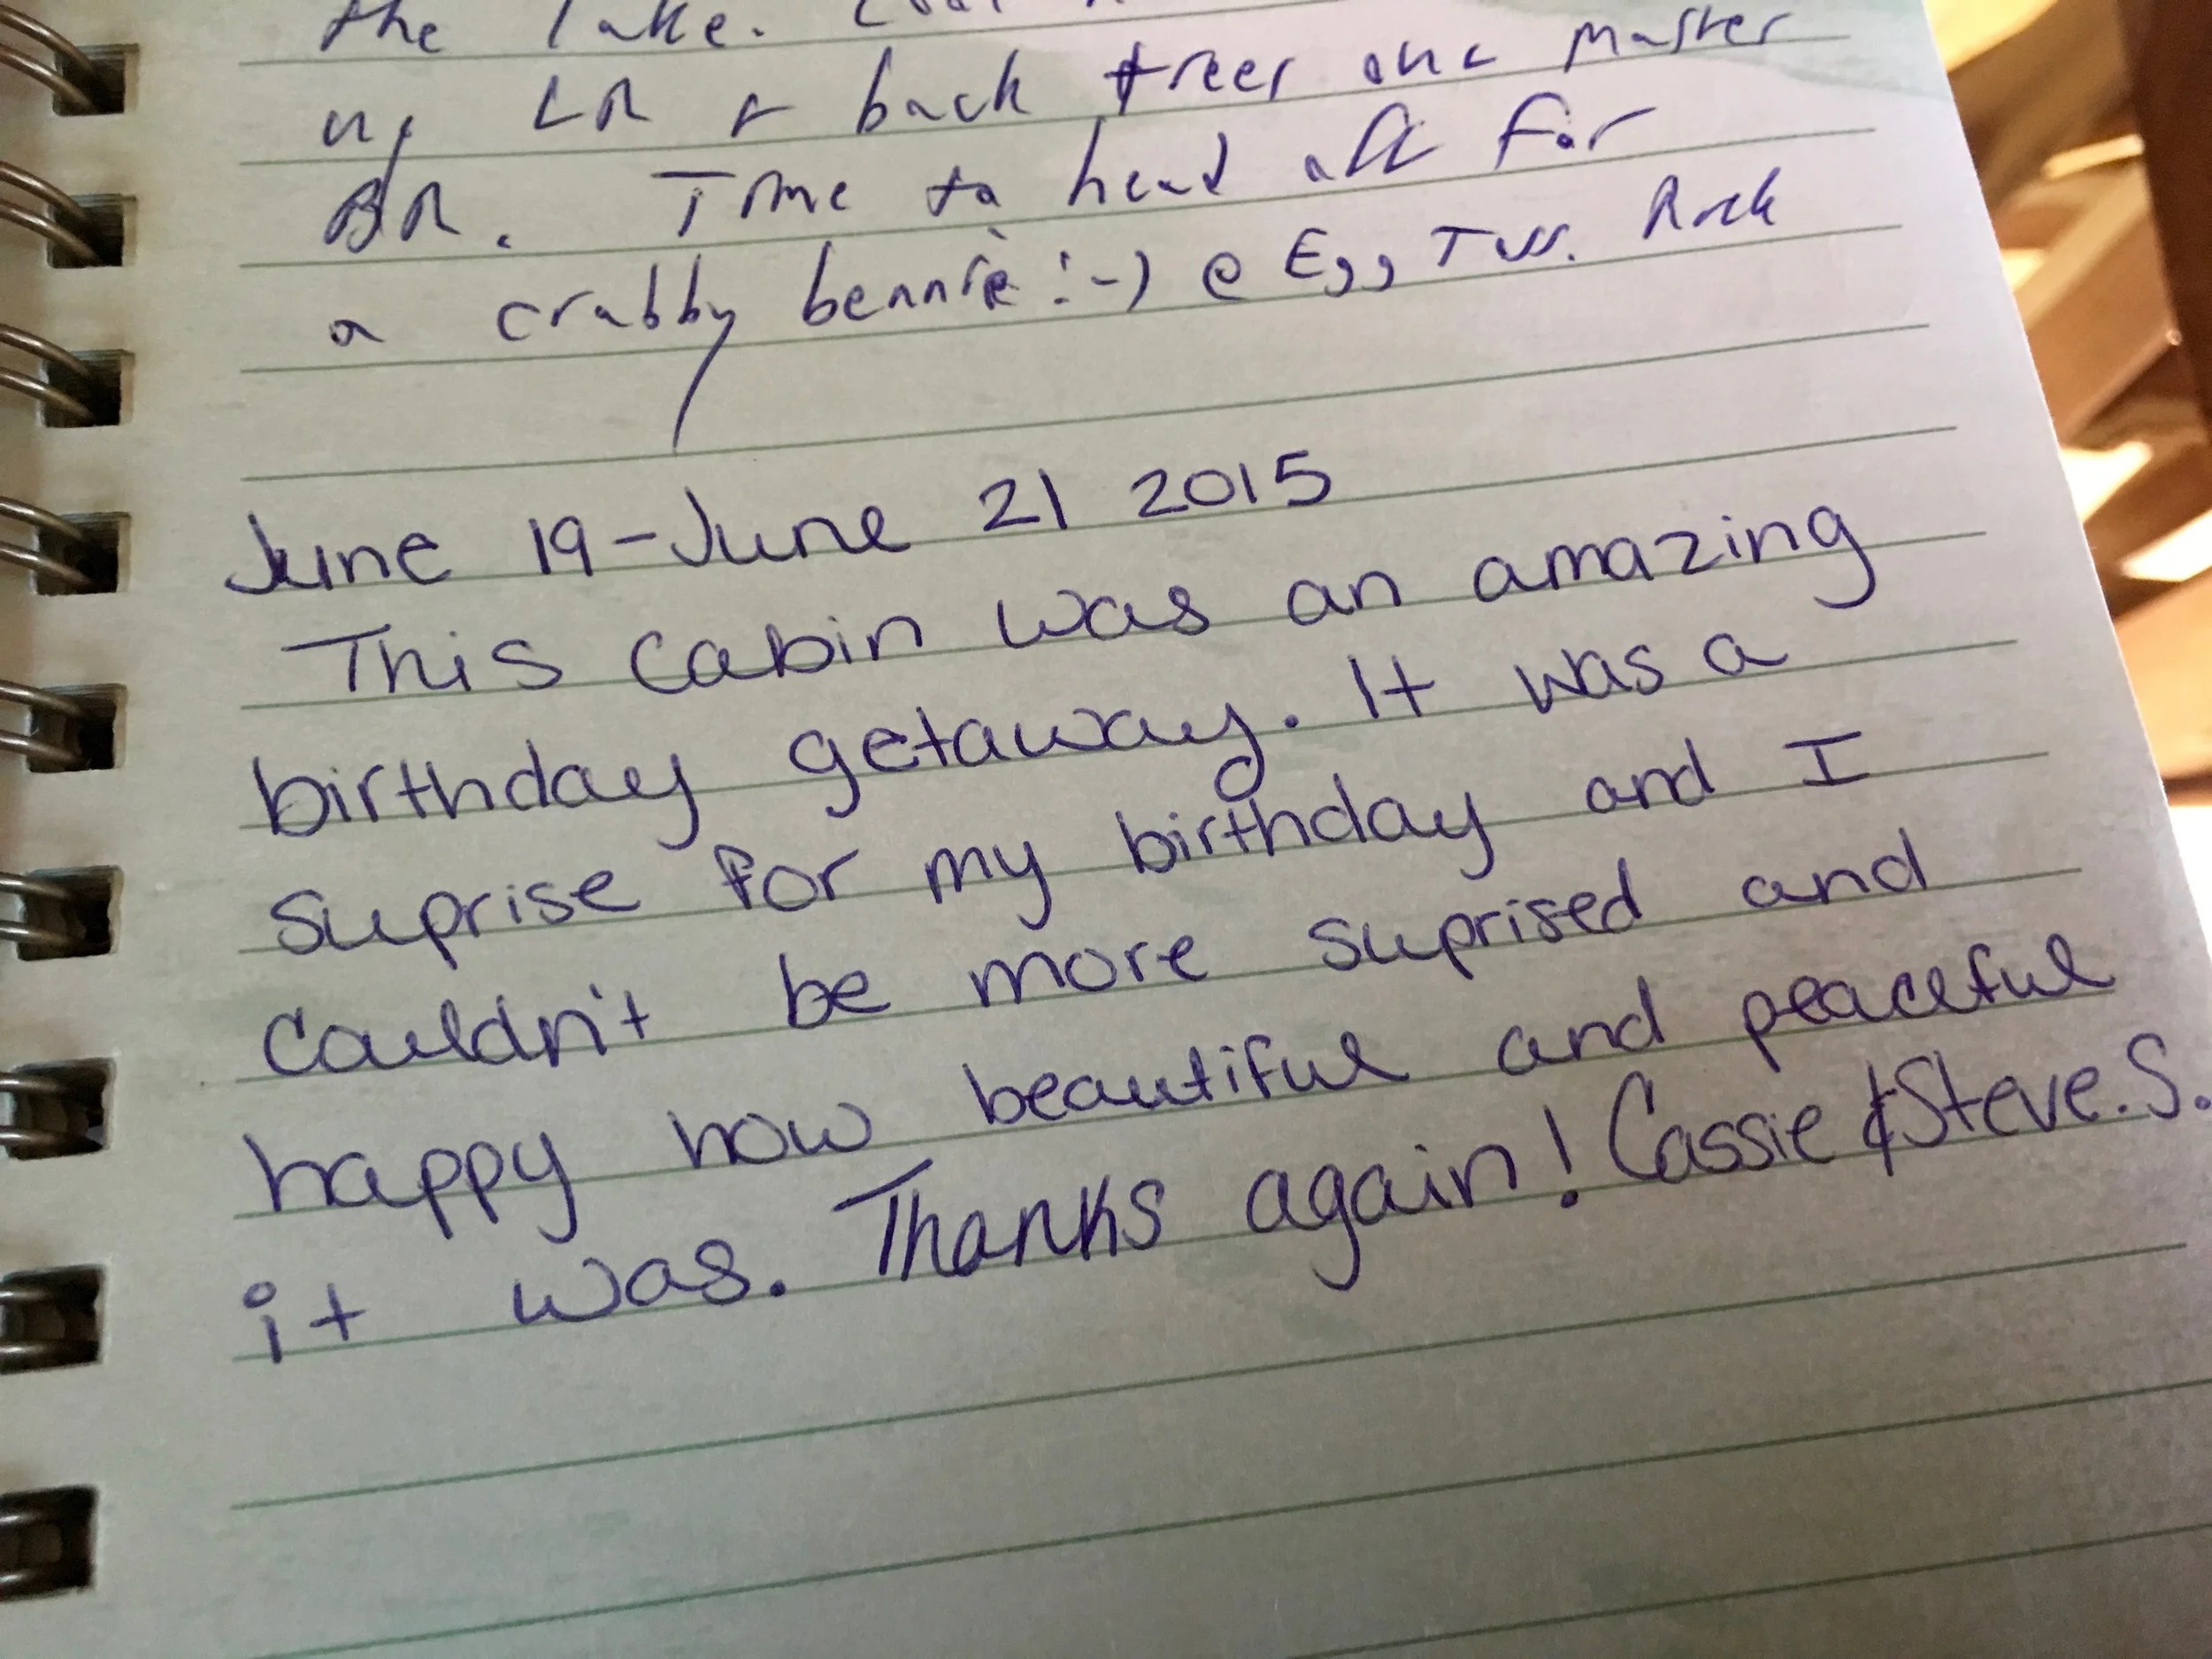 the lake.
up LR + back trees one master
BR. Time to head off for
a crabby bennie :-) @ Egg Tss. Rock
June 19-June 21 2015
This cabin was an amazing
birthday getaway. It was a
suprise for my birthday and I
couldn't be more suprised and
happy how beautiful and peaceful
it was. Thanks again! Cassie & Steve.S.